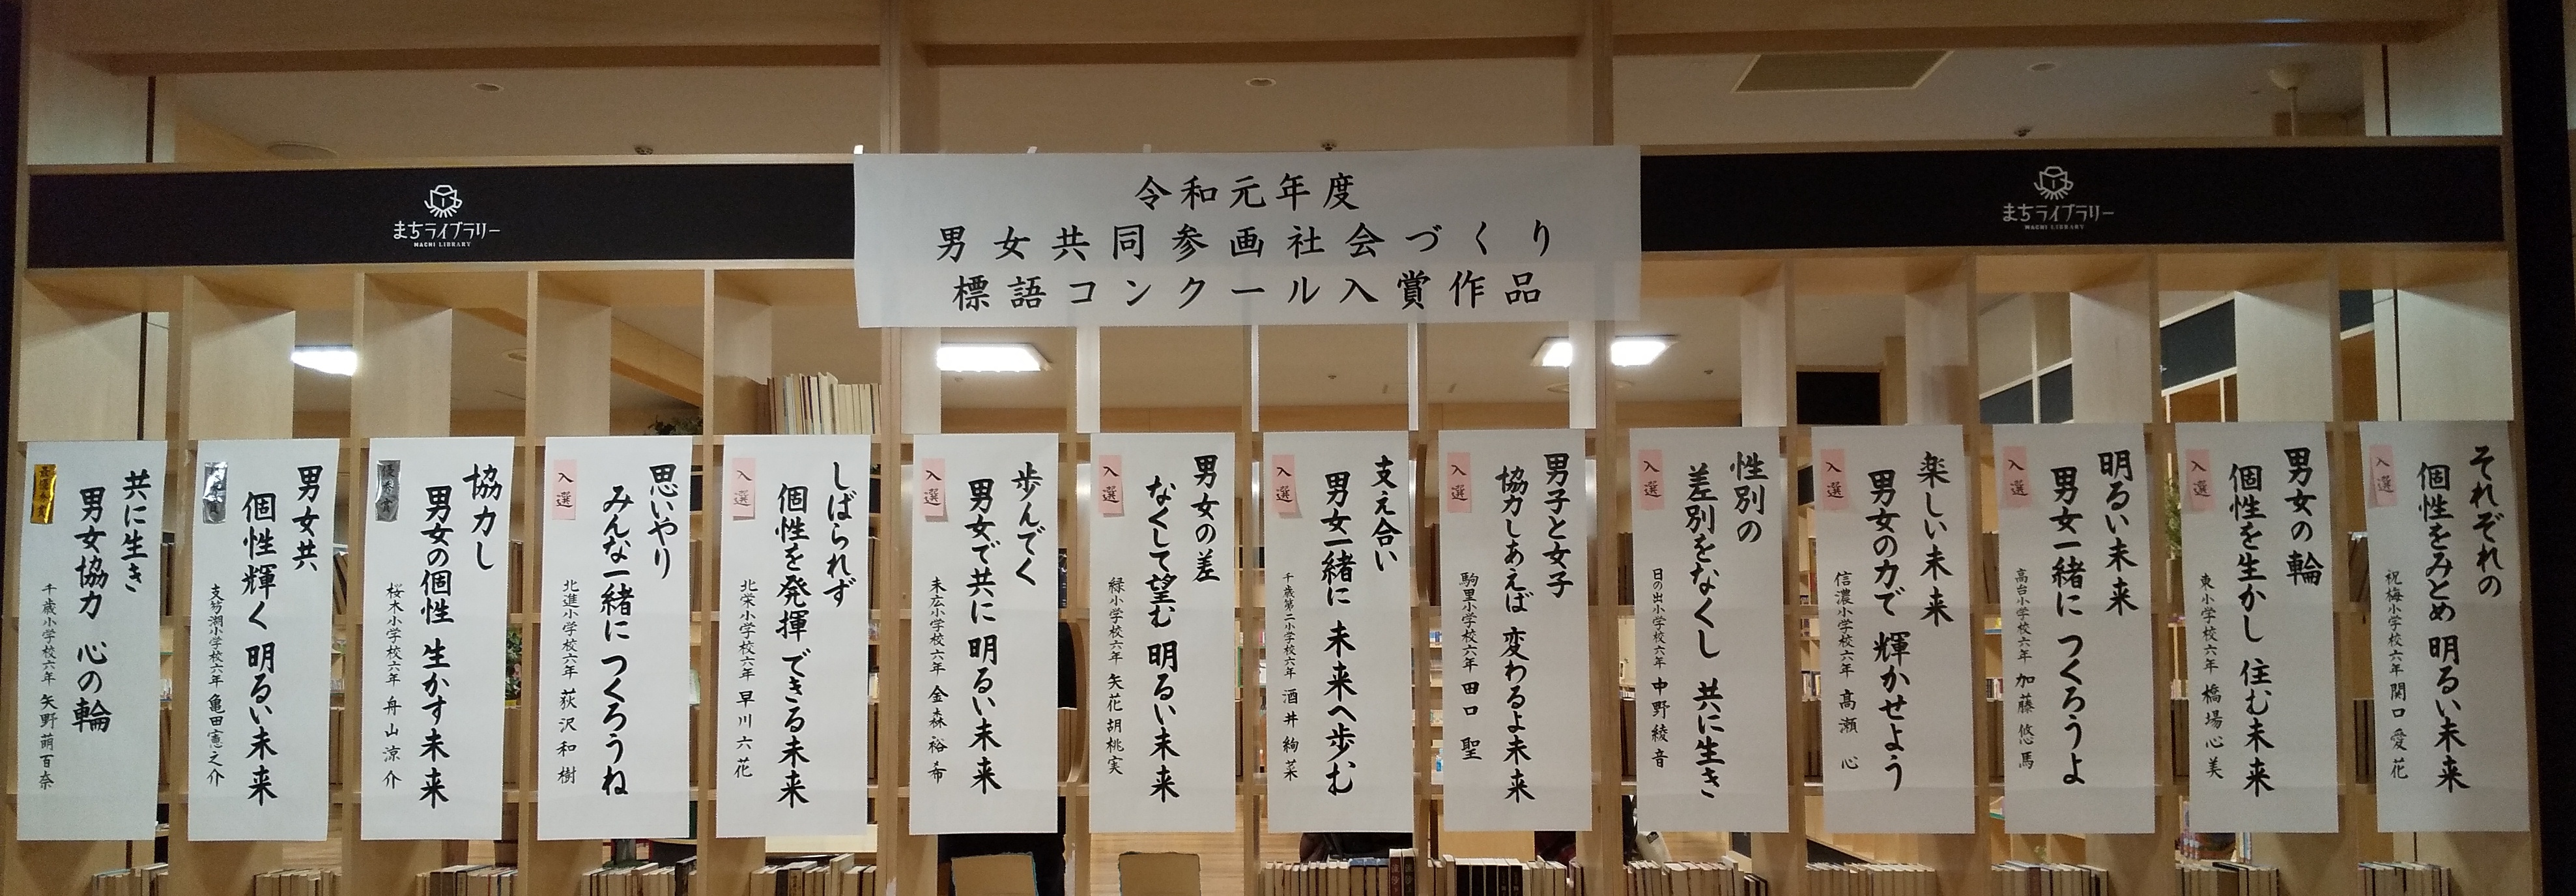 令和元年度
男女共同参画社会づくり
標語コンクール入賞作品
まちライブラリー
MACHI LIBRARY
まちライブラリー
MACHI LIBRARY
最優秀賞
共に生き
男女協力 心の輪
千歳小学校六年 矢野萌百奈
優秀賞
男女共
個性輝く 明るい未来
支笏湖小学校六年 亀田憲之介
優秀賞
協力し
男女の個性 生かす未来
桜木小学校六年 舟山涼介
入選
思いやり
みんな一緒に つくろうね
北進小学校六年 荻沢和樹
入選
しばられず
個性を発揮 できる未来
北栄小学校六年 早川六花
入選
歩んでく
男女で共に 明るい未来
末広小学校六年 金森裕希
入選
男女の差
なくして望む 明るい未来
緑小学校六年 矢花胡桃実
入選
支え合い
男女一緒に 未来へ歩む
千歳第二小学校六年 酒井絢菜
入選
男子と女子
協力しあえば 変わるよ未来
駒里小学校六年 田口 聖
入選
性別の
差別をなくし 共に生き
日の出小学校六年 中野綾音
入選
楽しい未来
男女の力で 輝かせよう
信濃小学校六年 髙瀬 心
入選
明るい未来
男女一緒に つくろうよ
高台小学校六年 加藤悠馬
入選
男女の輪
個性を生かし 住む未来
東小学校六年 橋場心美
入選
それぞれの
個性をみとめ 明るい未来
祝梅小学校六年 関口愛花